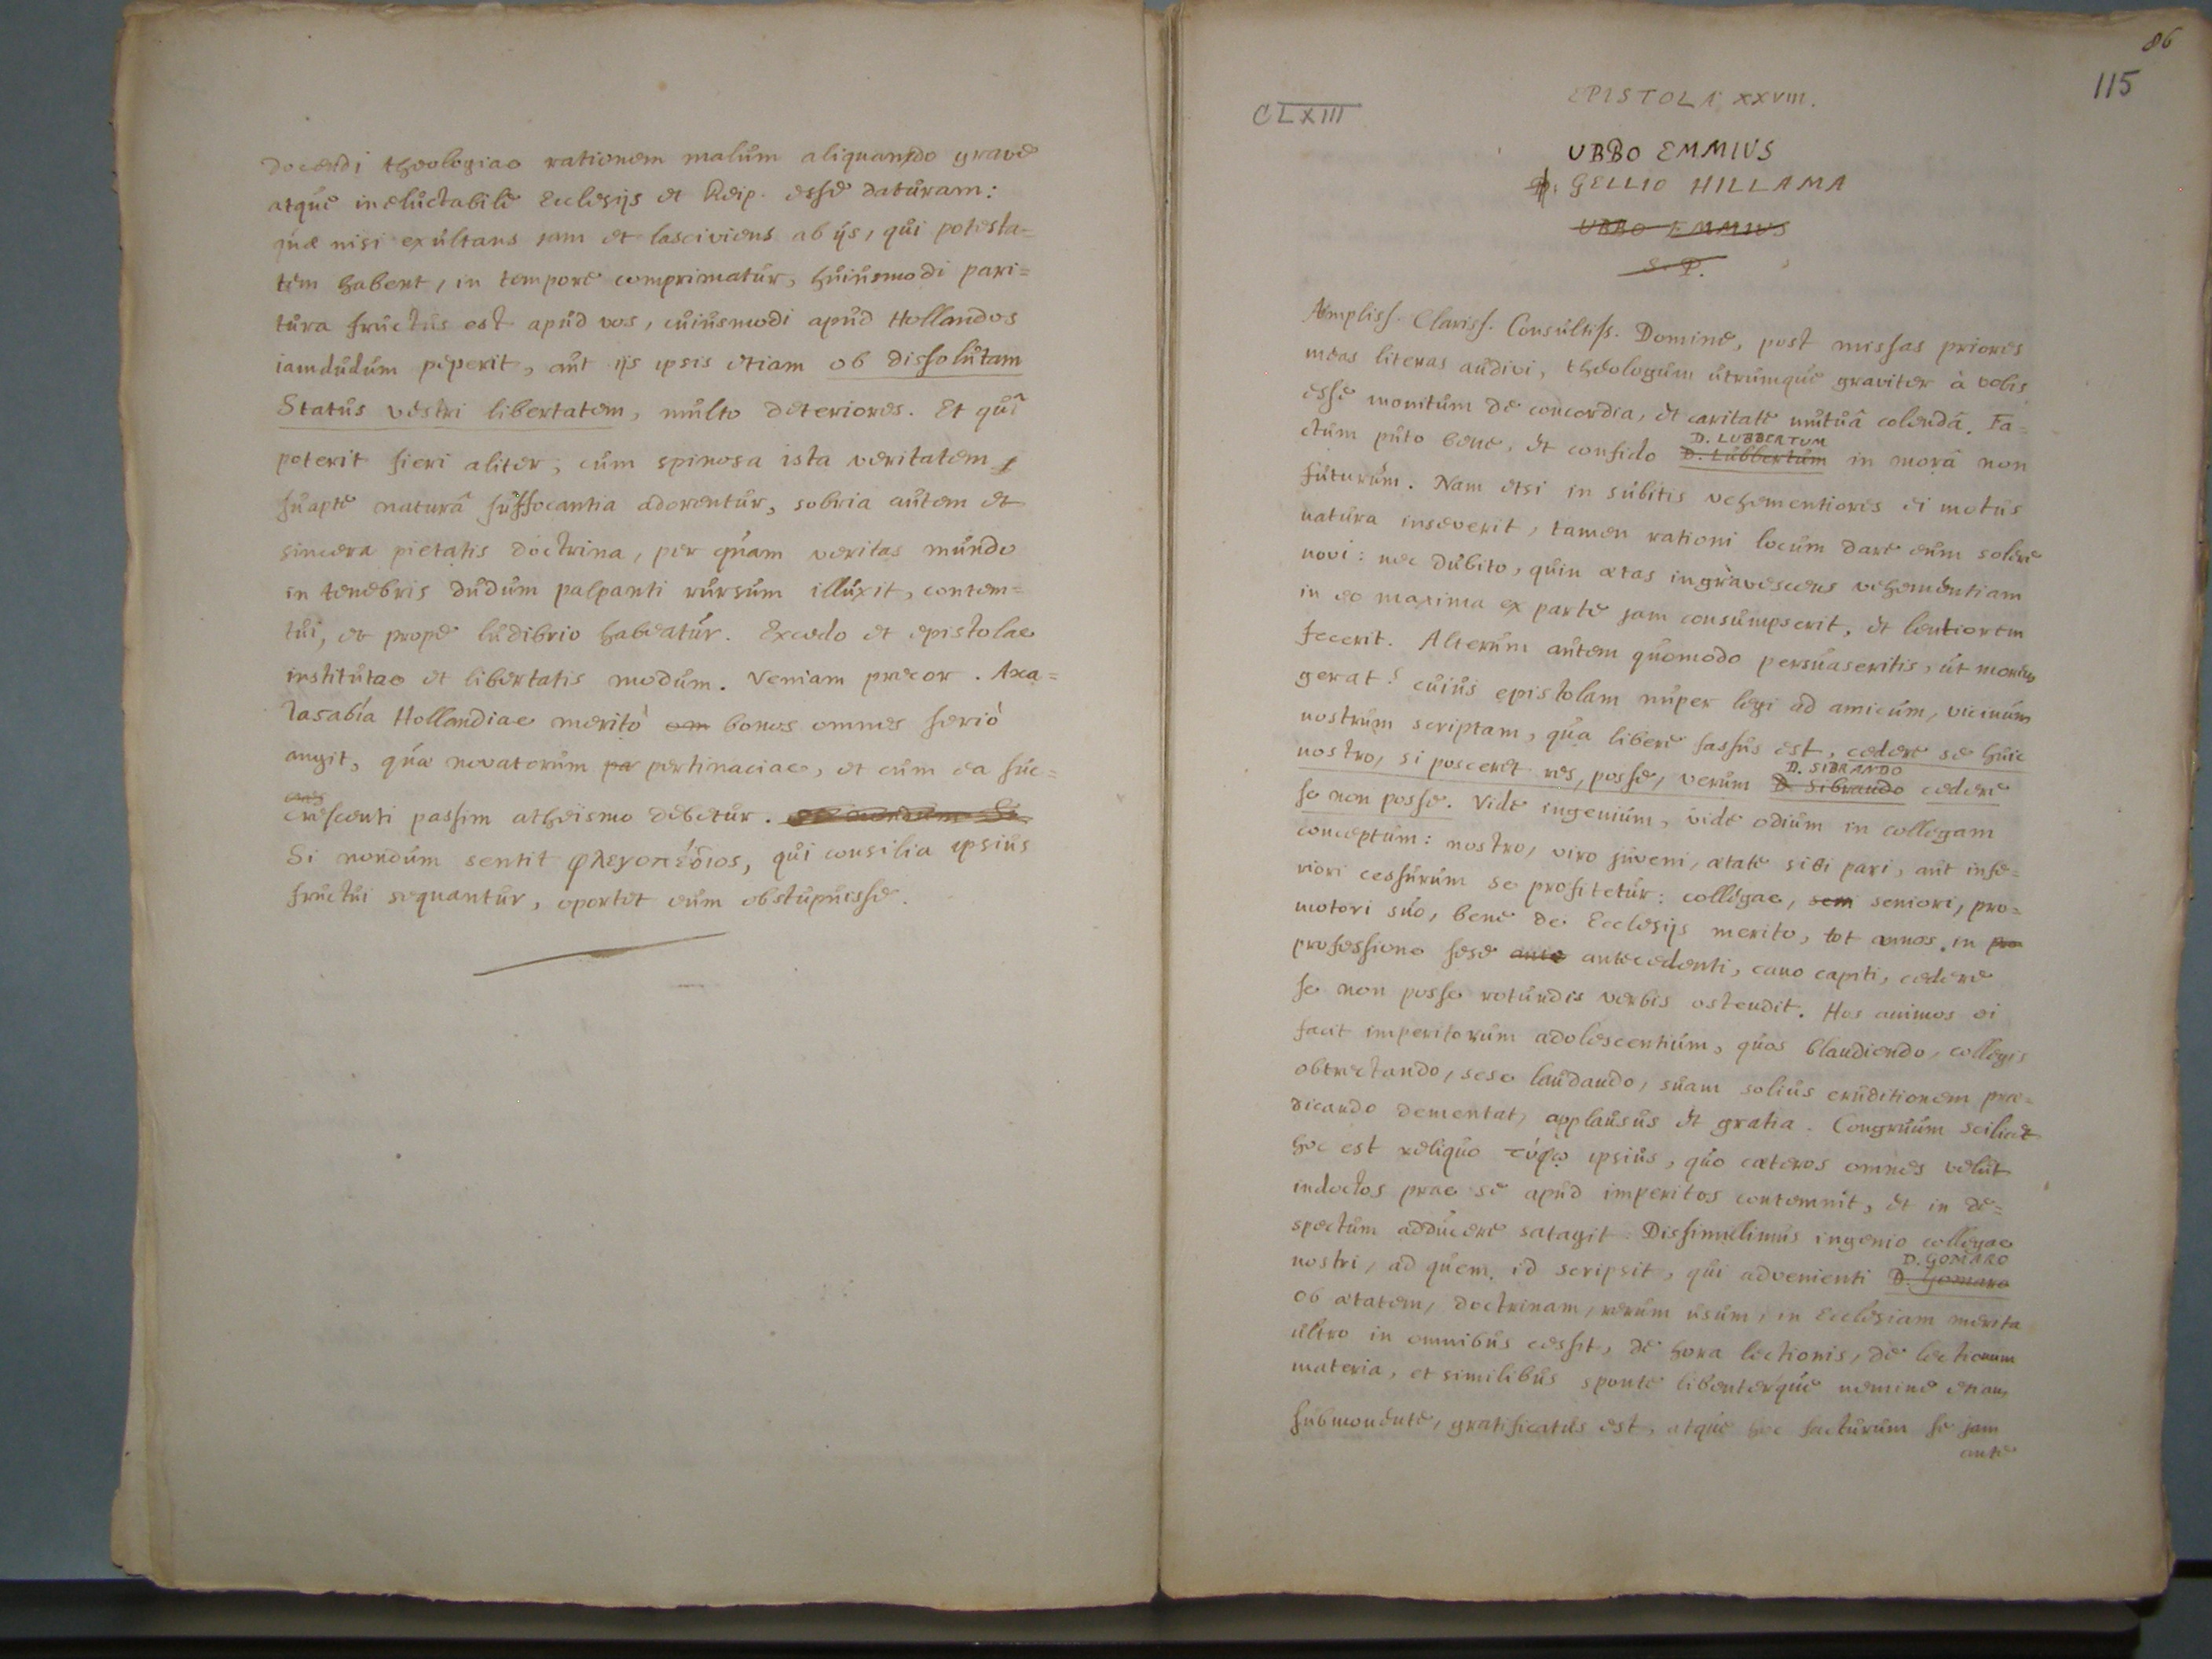 docendi theologiae rationem malum aliquando grave
atque ineluctabile Ecclesijs et Reip. esse daturam:
quae nisi exultans jam et lasciviens ab ijs, qui potesta=
tem habent, in tempore comprimatur, huiusmodi pari=
tura fructus est apud vos, cuiusmodi apud Hollandos
iamdudum peperit, aut ijs ipsis etiam ob dissolutam
Status vestri libertatem, multo deteriores. Et quî
poterit fieri aliter, cum spinosa ista veritatem
suapte naturâ suffocantia adorentur, sobria autem et
sincera pietatis doctrina, per quam veritas mundo
in tenebris dudum palpanti rursum illuxit, contem=
tui, et prope ludibrio habeatur. Excedo et epistolae
institutae et libertatis modum. Veniam precor. Axa=
tasabia Hollandiae meritò om bonos omnes seriò
angit, quae novatorum pe pertinaciae, et cum ea suc=
crescenti passim atheismo debetur.
Si nondum sentit φλεγοπέδιος, qui consilia ipsius
fructui sequantur, oportet eum obstupuisse.
86
115
CLXIII
EPISTOLA XXVIII.
UBBO EMMIUS
D. GELLIO HILLAMA
UBBO EMMIUS
S. P.
Ampliss. Clariss. Consultiss. Domine, post missas priores
meas literas audivi, theologum utrumque graviter à vobis
esse monitum de concordia, et caritate mutuâ colendâ. Fa=
D. LUBBERTUM
ctum puto bene, et confido D. Lubbertum in morâ non
futurum. Nam etsi in subitis vehementiores ei motus
natura inseverit, tamen rationi locum dare eum solere
novi: nec dubito, quin aetas ingravescens vehementiam
in eo maxima ex parte jam consumpserit, et lentiorem
fecerit. Alterum autem quomodo persuaseritis, ut morem
gerat? cuius epistolam nuper legi ad amicum, vicinum
nostrum scriptam, qua libere fassus est, cedere se huic
D. SIBRANDO
nostro, si posceret res, posse, verum D. Sibrando cedere
se non posse. Vide ingenium, vide odium in collegam
conceptum: nostro, viro juveni, aetate sibi pari, aut infe=
riori cessurum se profitetur: collegae, sem seniori, pro=
motori suo, bene de Ecclesijs merito, tot annos in pro
professione sese ante antecedenti, cano capiti, cedere
se non posse rotundis verbis ostendit. Hos animos ei
facit imperitorum adolescentium, quos blandiendo, collegis
obtrectando, sese laudando, suam solius eruditionem prae=
dicando dementat, applausus et gratia. Congruum scilicet
hoc est reliquo τύφῳ ipsius, quo caeteros omnes velut
indoctos prae se apud imperitos contemnit, et in de=
spectum adducere satagit. Dissimillimus ingenio collegae
D. GOMARO
nostri, ad quem id scripsit, qui advenienti D. Gomaro
ob aetatem, doctrinam, rerum usum, in Ecclesiam merita
ultro in omnibus cessit, de hora lectionis, de lectionum
materia, et similibus sponte libenterque nemine etiam
submonente, gratificatus est, atque hoc facturum se jam
ante